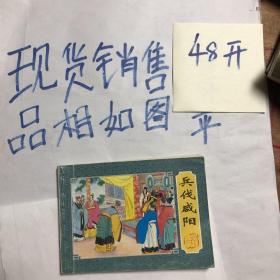 现货销售
48开
品相如图 平
兵伐咸阳